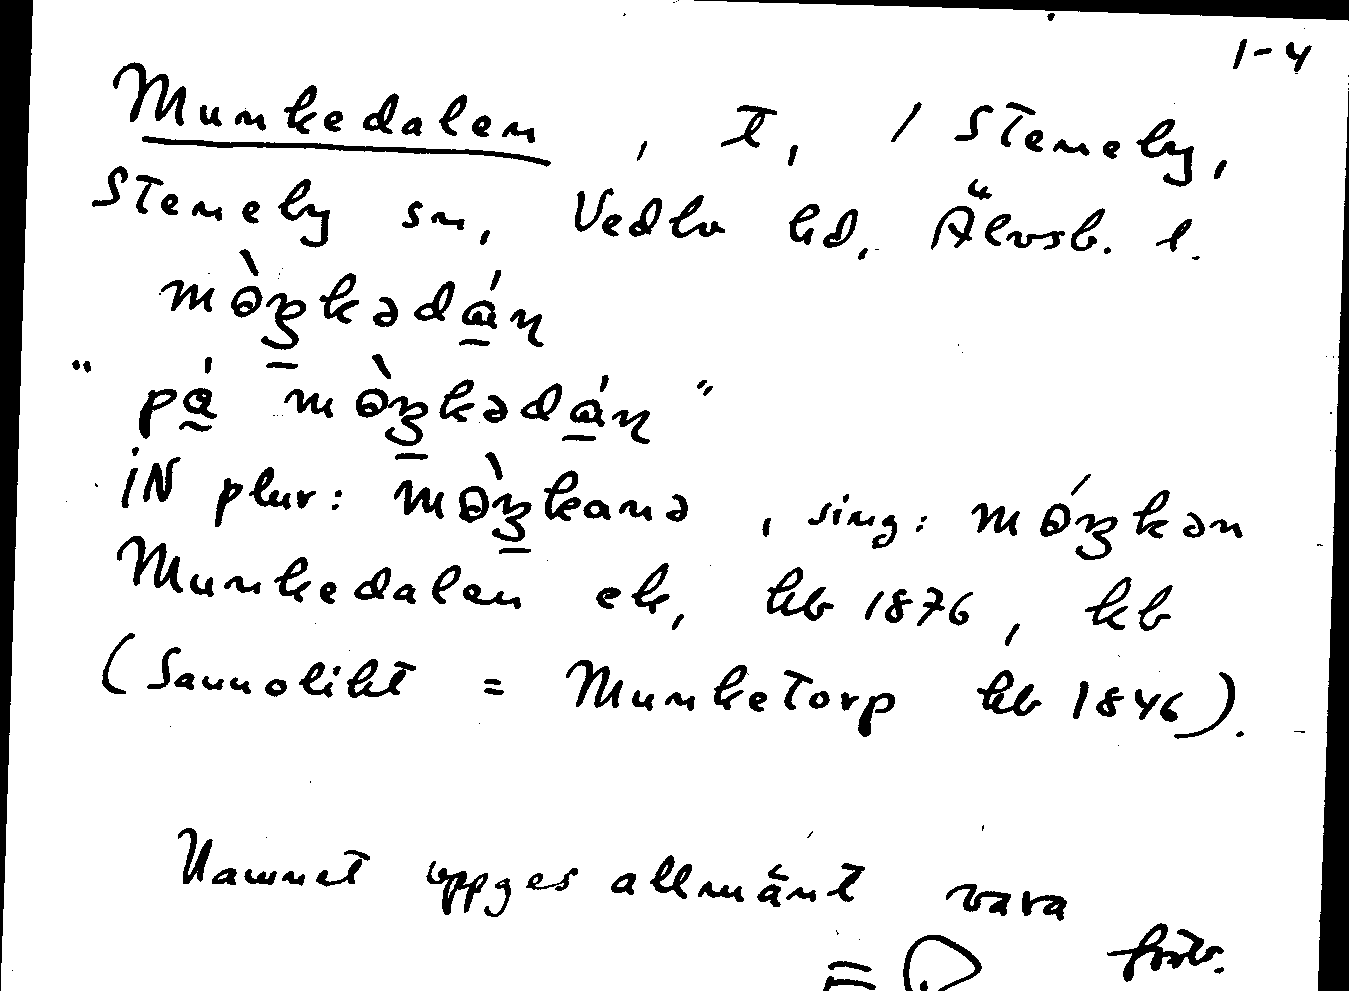 1-4
Munkedalen, t, / Steneby,
Steneby sn, Vedbo hd, Älvsb. l.
mòŋkədáɳ
"på mòŋkədáɳ"
iN plur: mòŋkanə, sing: móŋkən
Munkedalen ek, kb 1876, kb
(Sannolikt = Munketorp kb 1846).
Namnet uppges allmänt vara